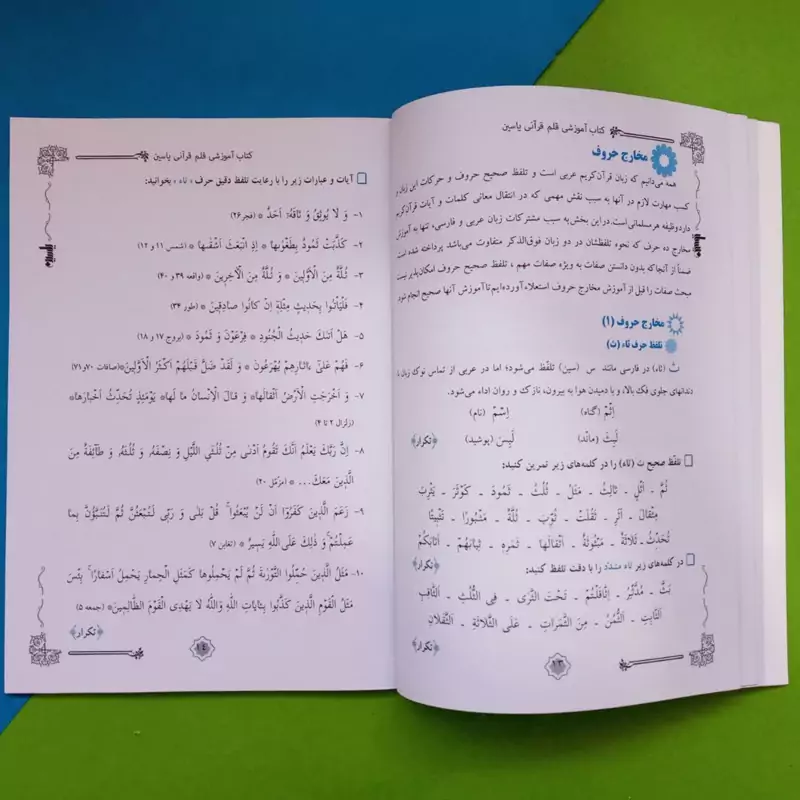 کتاب آموزشی قلم قرآنی یاسین
مخارج حروف
همه می‌دانیم که زبان قرآن‌کریم عربی است و تلفظ صحیح حروف و حرکات این زبان و
کسب مهارت لازم در آنها به سبب نقش مهمی که در انتقال معانی کلمات و آیات قرآن‌کریم
دارد وظیفه هر مسلمانی است. در این بخش به سبب مشترکات زبان عربی و فارسی، تنها به آموزش
مخارج ده حرف که نحوه تلفظشان در دو زبان فوق‌الذکر متفاوت می‌باشد پرداخته شده است
ضمناً از آنجا که بدون دانستن صفات به ویژه صفات مهم ، تلفظ صحیح حروف امکان‌پذیر نیست
مبحث صفات را قبل از آموزش مخارج حروف استعلاء آورده‌ایم تا آموزش آنها صحیح انجام شود
مخارج حروف (۱)
تلفظ حرف ثاء (ث)
ث (ثاء) در فارسی مانند س (سین) تلفظ می‌شود؛ اما در عربی از تماس نوک زبان با
دندانهای جلوی فک بالا، و با دمیدن هوا به بیرون، نازک و روان اداء می‌شود.
اِثْمْ (گناه) اِسْمْ (نام)
لَبِثَ (ماند) لَبِسَ (پوشید) ﴿تکرار﴾
تلفظ صحیح ث (ثاء) را در کلمه‌های زیر تمرین کنید:
ثُمَّ ـ اَثْلٍ ـ ثالِثُ ـ مَثَلُ ـ ثُلُثُ ـ ثَمُودَ ـ کَوْثَرَ ـ یَثْرِبَ
مِثْقالَ ـ اَثَرِ ـ ثَقُلَتْ ـ ثُوِّبَ ـ ثُلَّةٌ ـ مَثْبُورًا ـ تَثْبیتًا
تُحَدِّثُ ـ ثَلاثَةَ ـ مَبْثُوثَةٌ ـ اَثْقالَها ـ ثَمَرِهِ ـ ثِیابَهُمْ ـ اَثابَکُمْ
﴿تکرار﴾
در کلمه‌های زیر ثاء مشدّد را با دقت تلفظ کنید:
بَثَّ ـ مُدَّثِّرُ ـ اِثّاقَلْتُمْ ـ تَحْتَ الثَّرَى ـ فِی الثُّلُثِ ـ اَلثّاقِبُ
اَلثّابِتِ ـ اَلثُّمُنُ ـ مِنَ الثَّمَراتِ ـ عَلَى الثَّلاثَةِ ـ اَلثَّقَلانِ
﴿تکرار﴾
۱۳
کتاب آموزشی قلم قرآنی یاسین
آیات و عبارات زیر را با رعایت تلفظ دقیق حرف « ثاء » بخوانید:
۱- وَ لا یُوثِقُ وَ ثاقَهُۤ اَحَدٌ * (فجر ۲۶)
۲- کَذَّبَتْ ثَمُودُ بِطَغْوٰیهاۤ * اِذِ انْبَعَثَ اَشْقٰیها * (شمس ۱۱ و ۱۲)
۳- ثُلَّةٌ مِنَ الْاَوَّلینَ * وَ ثُلَّةٌ مِنَ الْآخِرینَ * (واقعه ۳۹ و ۴۰)
۴- فَلْیَأْتُوا بِحَدیثٍ مِثْلِهِۤ اِنْ کانُوا صادِقینَ * (طور ۳۴)
۵- هَلْ اَتٰکَ حَدیثُ الْجُنُودِ * فِرْعَوْنَ وَ ثَمُودَ * (بروج ۱۷ و ۱۸)
۶- فَهُمْ عَلٰىۤ ءاثارِهِمْ یُهْرَعُونَ * وَ لَقَدْ ضَلَّ قَبْلَهُمْ اَکْثَرُ الْاَوَّلینَ* (صافات ۷۰ و ۷۱)
۷- وَ اَخْرَجَتِ الْاَرْضُ اَثْقالَها* وَ قالَ الْاِنْسانُ ما لَها* یَوْمَئِذٍ تُحَدِّثُ اَخْبارَها*
(زلزال ۲ تا ۴)
۸- اِنَّ رَبَّکَ یَعْلَمُ اَنَّکَ تَقُومُ اَدْنٰى مِنْ ثُلُثَیِ اللَّیْلِ وَ نِصْفَهُ، وَ ثُلُثَهُ، وَ طاۤئِفَةٌ مِنَ
الَّذینَ مَعَکَ... * (مزمّل ۲۰)
۹- زَعَمَ الَّذینَ کَفَرُوۤا اَنْ لَنْ یُبْعَثُوا ۚ قُلْ بَلٰى وَ رَبّی لَتُبْعَثُنَّ ثُمَّ لَتُنَبَّؤُنَّ بِما
عَمِلْتُمْ ۚ وَ ذٰلِکَ عَلَى اللهِ یَسیرٌ * (تغابن ۷)
۱۰- مَثَلُ الَّذینَ حُمِّلُوا التَّوْرٰیةَ ثُمَّ لَمْ یَحْمِلُوها کَمَثَلِ الْحِمارِ یَحْمِلُ اَسْفارًا ۚ بِئْسَ
مَثَلُ الْقَوْمِ الَّذینَ کَذَّبُوا بِـَٔایاتِ اللهِ وَاللهُ لا یَهْدِی الْقَوْمَ الظّالِمینَ* (جمعه ۵)
﴿تکرار﴾
۱۴